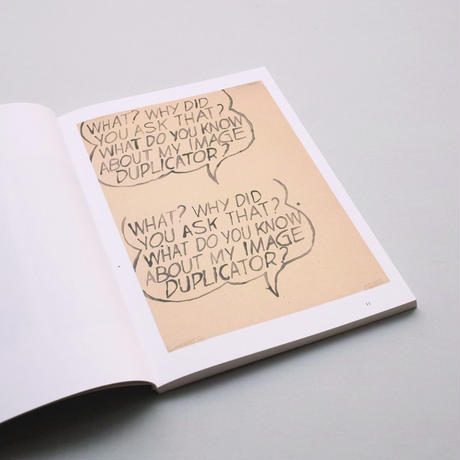 WHAT? WHY DID
YOU ASK THAT?
WHAT DO YOU KNOW
ABOUT MY IMAGE
DUPLICATOR?
WHAT? WHY DID
YOU ASK THAT?
WHAT DO YOU KNOW
ABOUT MY IMAGE
DUPLICATOR?